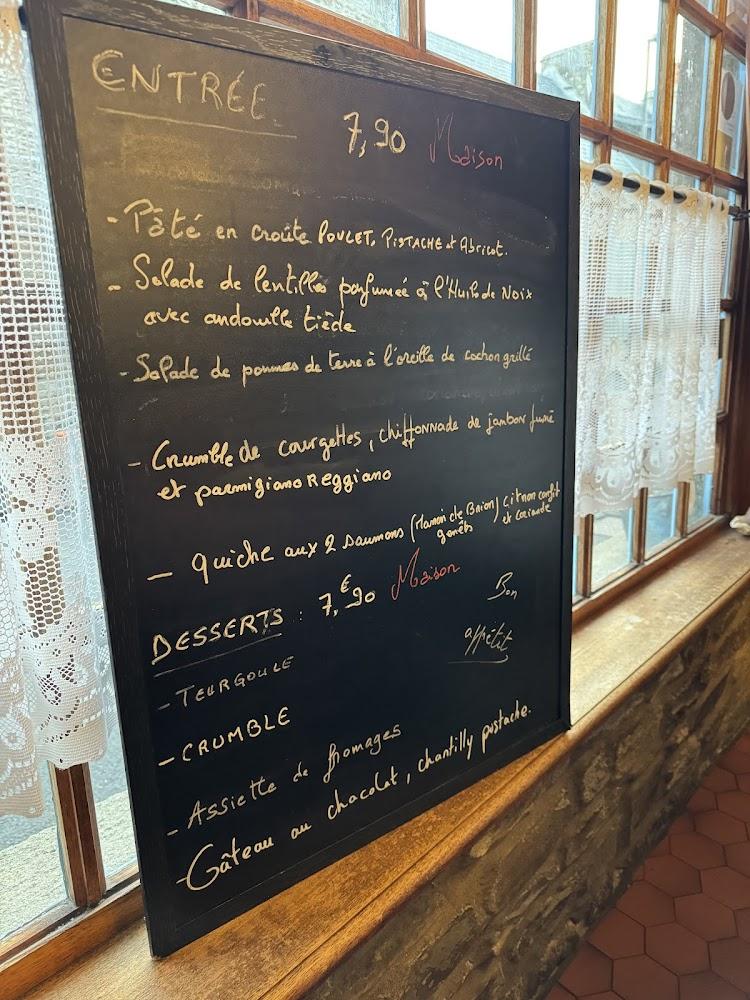 ENTRÉE
7,90 Maison
- Pâté en croûte POULET, PISTACHE et Abricot.
- Salade de lentilles parfumée à l'Huile de Noix
avec andouille tiède
- Salade de pommes de terre à l'oreille de cochon grillé
- Crumble de courgettes, chiffonnade de jambon fumé
et parmigiano Reggiano
- quiche aux 2 saumons (Manoir de Brion) citron confit
genêts et coriande
DESSERTS : 7,€90 Maison
Bon
appétit
- TEURGOULE
- CRUMBLE
- Assiette de fromages
- Gâteau au chocolat, chantilly pistache.